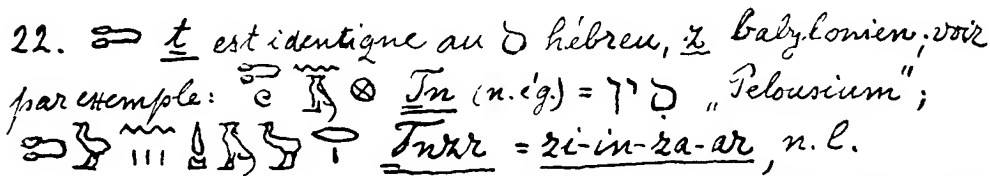 22. 𓍿 ṯ est identique au ס hébreu, z babylonien; voir
par exemple: 𓊖 Ṯn (n. ég.) = סִין „Pelousium";
Ṯnzr = zi-in-za-ar, n. l.